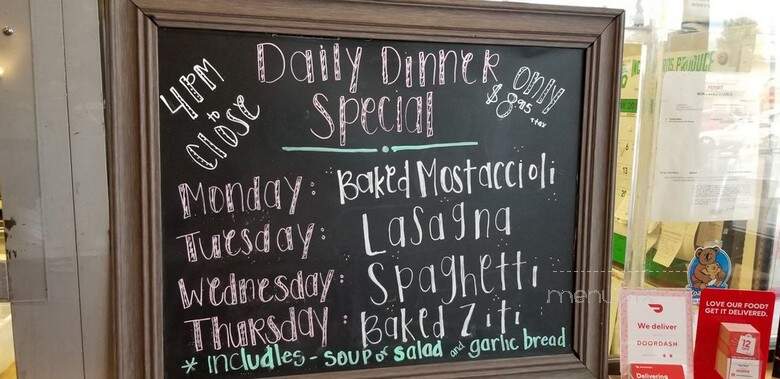 Daily Dinner
Special
4PM
to
Close
ONLY
$8.95
+tax
Monday: Baked Mostaccioli
Tuesday: Lasagna
Wednesday: Spaghetti
Thursday: Baked Ziti
* includles - soup or salad and garlic bread
menu
PRODUCE
We deliver
DOORDASH
Delivering
LOVE OUR FOOD?
GET IT DELIVERED.
12